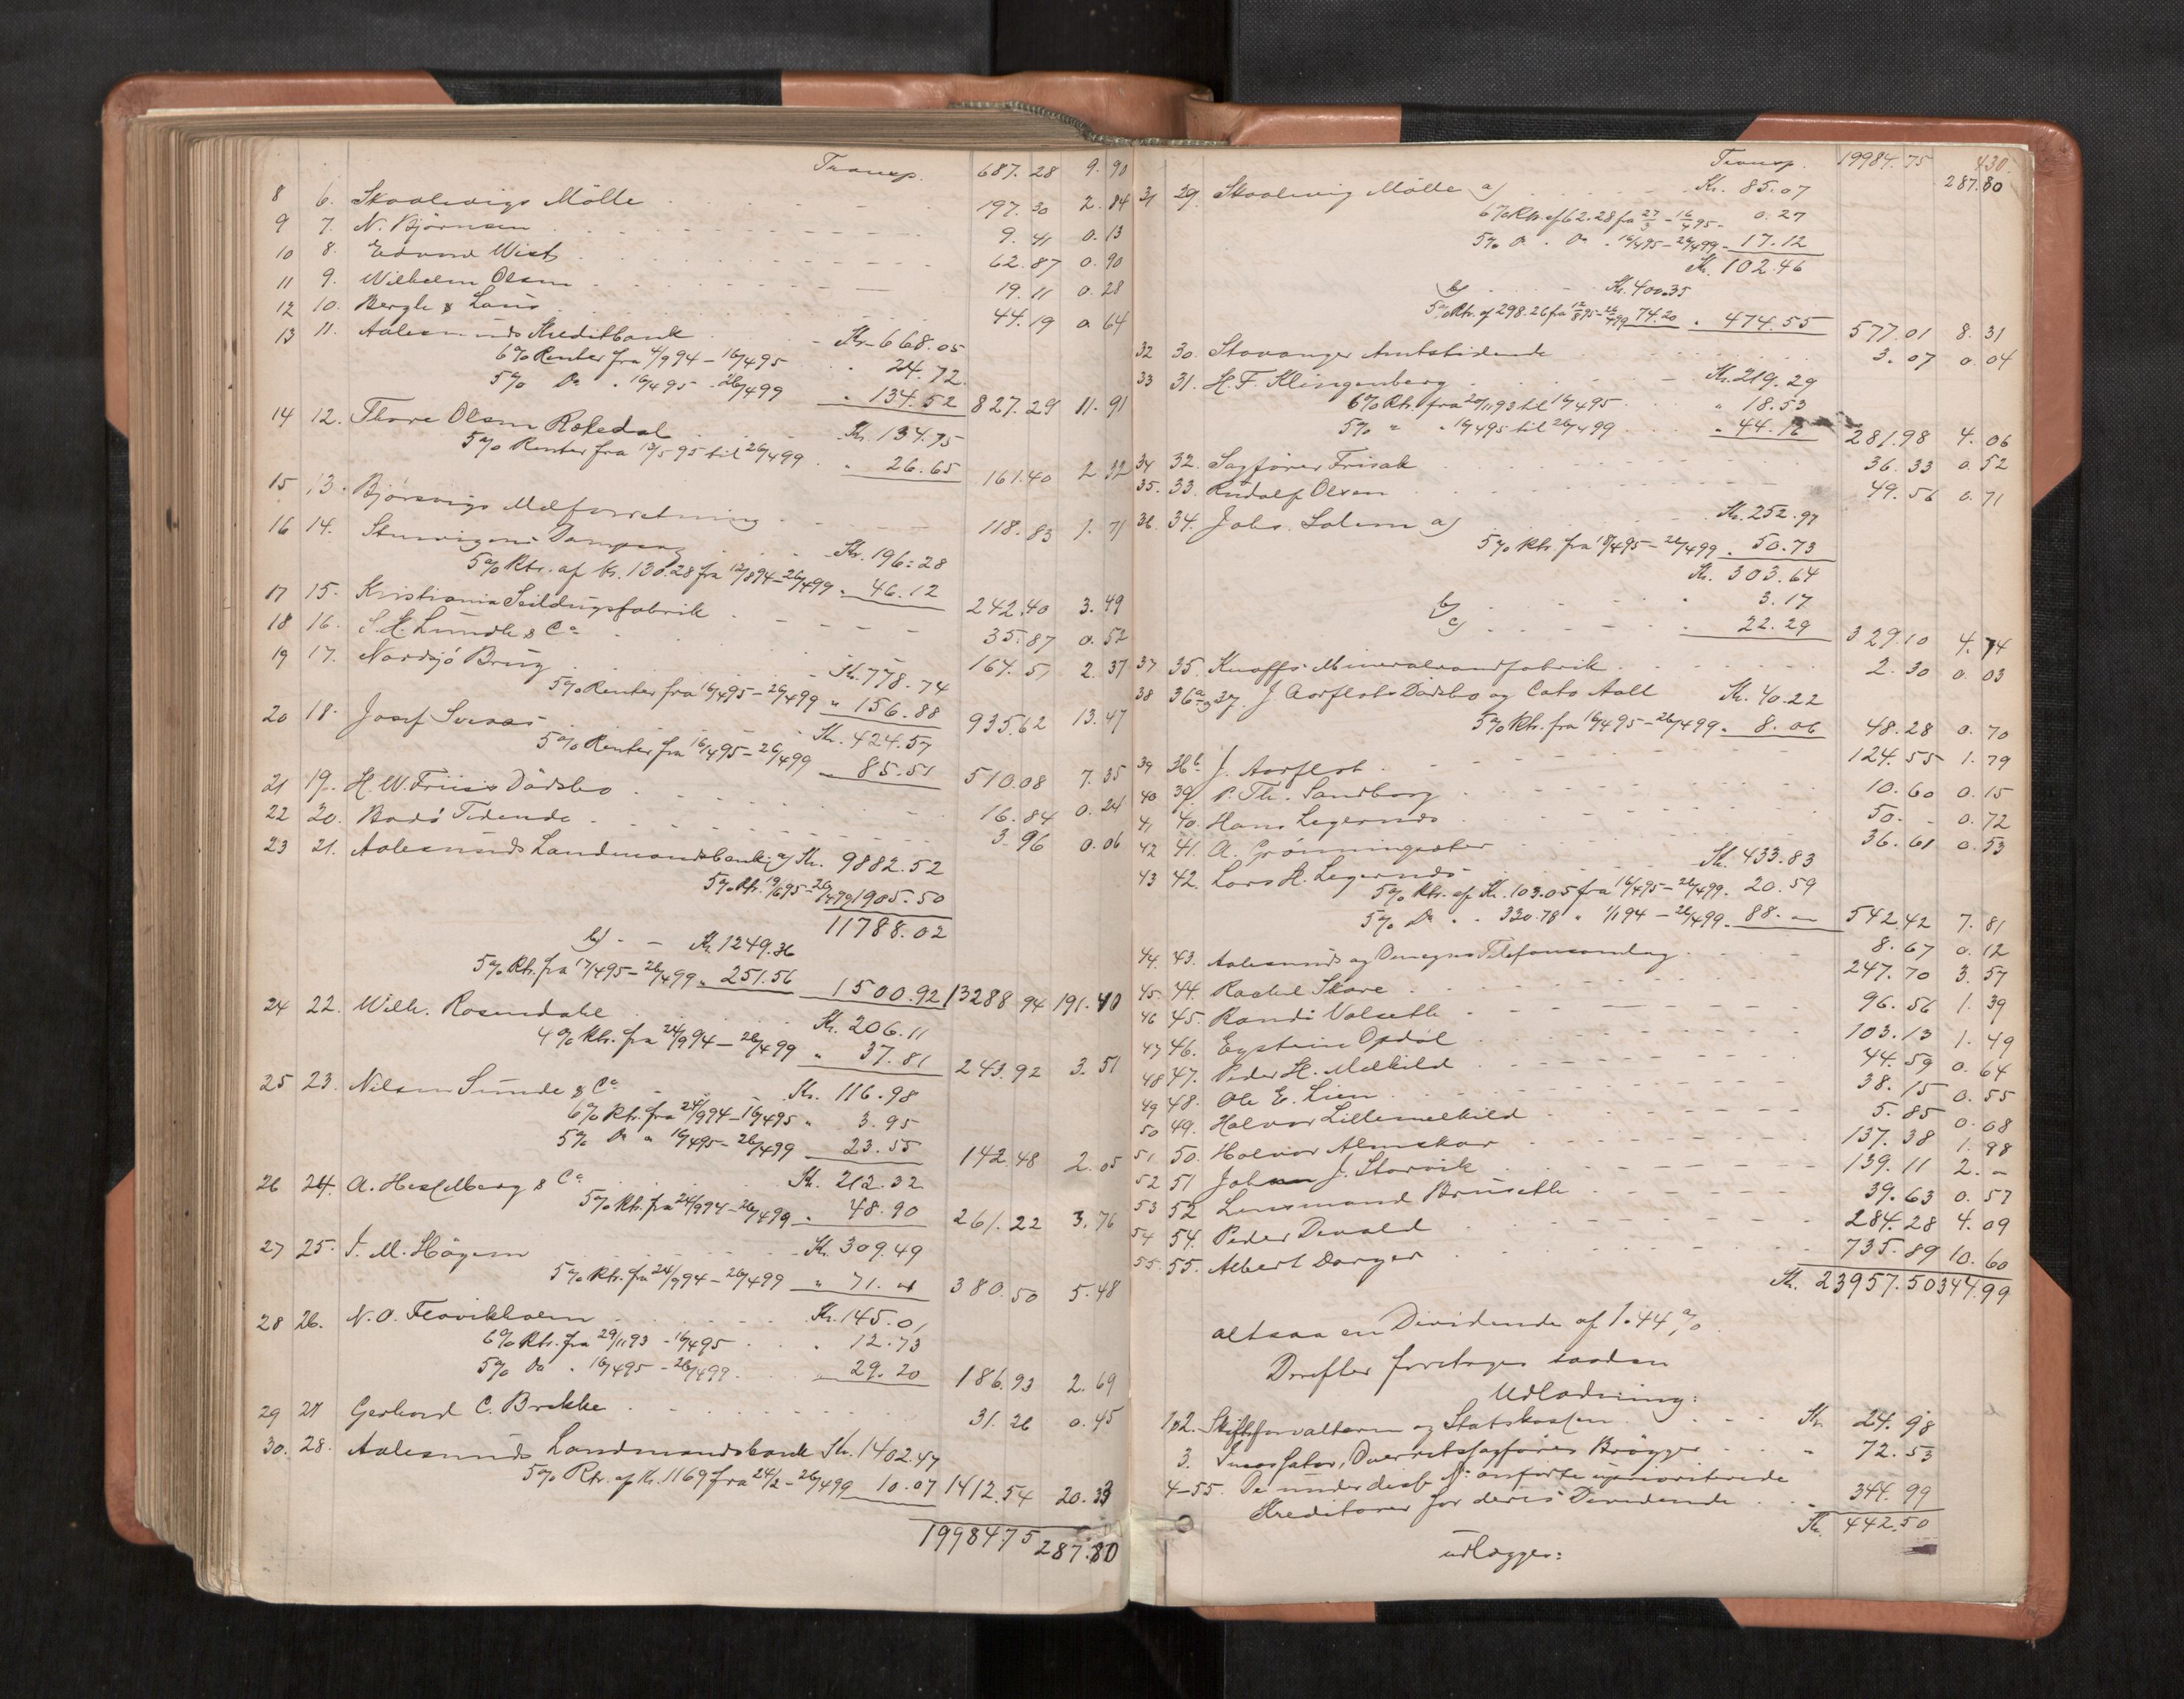 Transp. 687.28 9.90
8 6. Skaalvigs Mölle 197.30 2.84
9 7. N. Bjørnsen 9.41 0.13
10 8. Edvard Wist 62.87 0.90
11 9. Wilhelm Olsen 19.11 0.28
12 10. Bergh & Lans 44.19 0.64
13 11. Aalesunds Kreditbank Kr. 668.05
6% Renter fra 4/9 94 – 16/4 95 24.72
5% Do " 16/4 95 – 26/4 99 " 134.52 827.29 11.91
14 12. Thore Olsen Rekedal Kr. 134.75
5% Renter fra 12/5 95 til 26/4 99 " 26.65 161.40 2.32
15 13. Bjørsvigs Melforretning 118.83 1.71
16 14. Stuevigens Dampsag Kr. 196.28
5% Rtr. af Kr. 130.28 fra 12/8 94 – 26/4 99 " 46.12 242.40 3.49
17 15. Kristiania Seildugsfabrik 35.87 0.52
18 16. S. H. Lundh & Co 164.57 2.37
19 17. Nordsjö Brug Kr. 778.74
5% Renter fra 16/4 95 – 26/4 99 " 156.88 935.62 13.47
20 18. Josef Svenes Kr. 424.57
5% Renter fra 16/4 95 – 26/4 99 85.51 510.08 7.35
21 19. H. W. Friis's Dödsbo 16.84 0.24
22 20. Bodö Tidende 3.96 0.06
23 21. Aalesunds Landmandsbank a) Kr. 9882.52
5% Rtr. 19/6 95 – 26/4 99 1905.50
11788.02
b) Kr. 1249.36
5% Rtr. fra 17/4 95 – 26/4 99 " 251.56 1500.92 13288.94 191.40
24 22. Wilh. Rosendahl Kr. 206.11
4% Rtr. fra 24/9 94 – 26/4 99 " 37.81 243.92 3.51
25 23. Nilsen Sunde & Co Kr. 116.98
6% Rtr. fra 24/9 94 – 16/4 95 " 3.95
5% Do " 16/4 95 – 26/4 99 23.55 142.48 2.05
26 24. A. Hesselberg & Co Kr. 212.32
5% Rtr. fra 24/9 94 – 26/4 99 " 48.90 261.22 3.76
27 25. J. M. Högem Kr. 309.49
5% Rtr. fra 24/9 94 – 26/4 99 " 71.01 380.50 5.48
28 26. N. O. Flovikholm Kr. 145.01
6% Rtr. fra 29/11 93 – 16/4 95 " 12.73
5% Do " 16/4 95 – 26/4 99 29.20 186.93 2.69
29 27 Gerhard C. Brekke 31.26 0.45
30. 28. Aalesunds Landmandsbank Kr. 1402.47
5% Rtr. af Kr. 1169 fra 24/2 – 26/4 99 10.07 1412.54 20.33
19984.75 287.80
430.
Transp. 19984.75 287.80
31 29. Skaalvig Mölle a) Kr. 85.07
6% Rtr. af 62.28 fra 27/3 – 16/4 95 – 0.27
5% Do " Do " 16/4 95 – 26/4 99 – 17.12
Kr. 102.46
b) Kr. 400.35
5% Rtr. af 298.26 fra 12/8 95 – 26/4 99 74.20 " 474.55 577.01 8.31
32 30. Stavanger Amtstidende 3.07 0.04
33 31. H. F. Klingenberg Kr. 219.29
6% Rtr. fra 20/11 93 til 16/4 95 " 18.53
5% " " 16/4 95 til 26/4 99 " 44.16 281.98 4.06
34 32. Sagfører Frisak 36.33 0.52
35. 33. Rudolf Olsen 49.56 0.71
36. 34. Johs. Solem a) Kr. 252.91
5% Rtr. fra 18/4 95 – 26/4 99 " 50.73
Kr. 303.64
b) " 3.17
c) " 22.29 329.10 4.74
37 35. Knoffs Mineralvandfabrik 2.30 0.03
38 36a og 37. J. Aarflots Dödsbo og Cato Aall Kr. 40.22
5% Rtr. fra 16/4 95 – 26/4 99 " 8.06 48.28 0.70
39 36b J. Aarflot 124.55 1.79
40 39. P. Th. Sandborg 10.60 0.15
41 40. Hans Legernes 50.– 0.72
42 41. A. Grönningsæter 36.61 0.53
43 42. Lars H. Legernes Kr. 433.83
5% Rtr. af Kr. 103.05 fra 16/4 95 – 26/4 99 " 20.59
5% Do " " 330.78 " 1/1 94 – 26/4 99 " 88.– 542.42 7.81
44. 43. Aalesunds og Omegns Telefonsamlag 8.67 0.12
45. 44. Rachel Skare 247.70 3.57
46 45. Randi Valseth 96.56 1.39
47 46. Eystein Opdöl 103.13 1.49
48 47. Peder H. Melkild 44.59 0.64
49 48. Ole E. Lien 38.15 0.55
50 49. Halvor Lillemelkild 5.85 0.08
51 50. Halvor Almskar 137.38 1.98
52 51 Johan J. Storvik 139.11 2.–
53 52 Lensmand Bruseth 39.63 0.57
54 54. Peder Devold 284.28 4.09
55. 55. Albert Dorger 735.89 10.60
Kr. 23957.50 344.99
altsaa en Dividende af 1.44%
Derefter foretages saadan
Udlodning:
1 & 2. Skifteforvalteren og Statskassen Kr. 24.98
3. Incassator, Overretssagfører Brögger " 72.53
4–55. De under dette No anførte uprioriterede
Kreditorer for deres Dividende " 344.99
Kr. 442.50
udlægges: